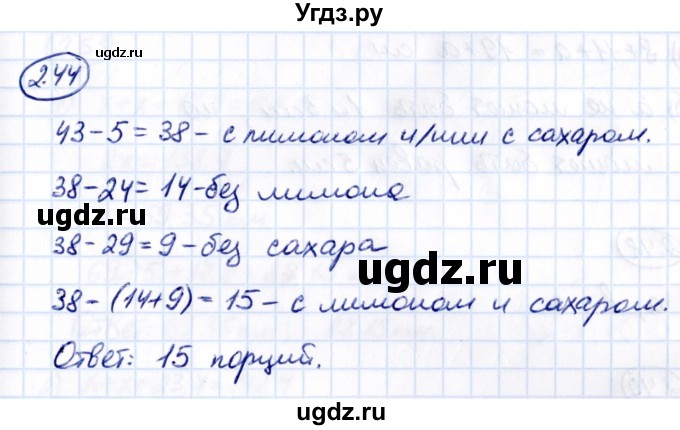 Угдз.ру
2.44
43-5=38- с лимоном и/или с сахаром.
38-24=14-без лимона
ugdz.ru
ugdz.ru
38-29=9-без сахара
ugdz.ru
38-(14+9)=15- с лимоном и сахаром.
Ответ: 15 порций.
ugdz.ru
ugdz.ru